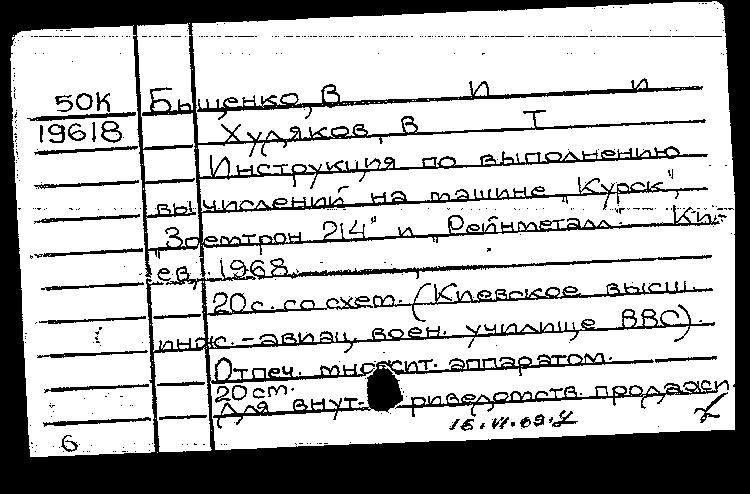 50К Быщенко, В И И
19618 Худяков, В Т
Инструкция по выполнению
вычислений на машине „Курск",
„Зоемтрон 214" и „Рейнметалл". Ки-
ев, 1968.
20 с. со схем. (Киевское высш.
инж.-авиац. воен. училище ВВС).
Отпеч. множит. аппаратом.
20 см.
Для внут- риведомств. продажи
15.VI.69.
6